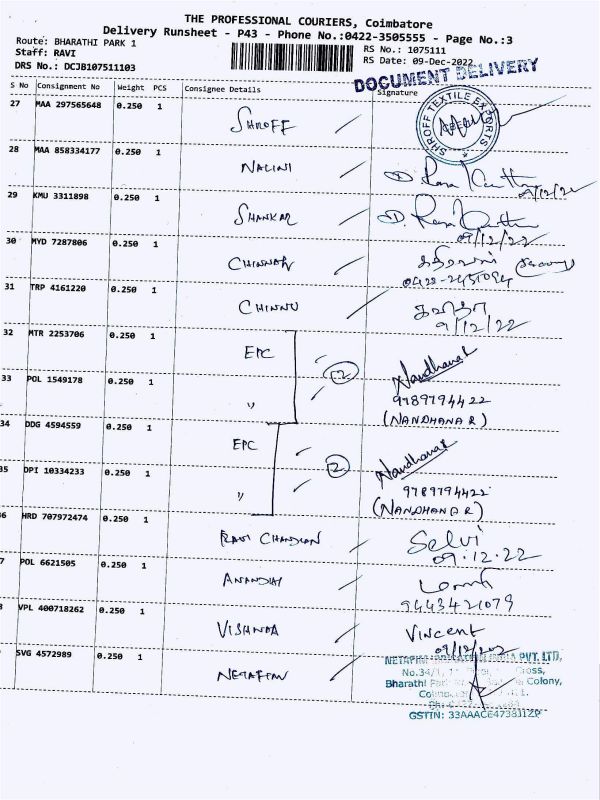 THE PROFESSIONAL COURIERS, Coimbatore
Delivery Runsheet - P43 - Phone No.:0422-3505555 - Page No.:3
Route: BHARATHI PARK 1
RS No.: 1075111
Staff: RAVI
RS Date: 09-Dec-2022
DRS No.: DCJB107511103
DOCUMENT DELIVERY
S No Consignment No Weight PCS Consignee Details Signature
27 MAA 297565648 0.250 1 SHROFF
SHROFF TEXTILE EXPORTS
28 MAA 858334177 0.250 1 NALINI
09/12/22
29 KMU 3311898 0.250 1 SHANKAR
09/12/22
30 MYD 7287806 0.250 1 CHINNAR
31 TRP 4161220 0.250 1 CHINNU
9/12/22
32 MTR 2253706 0.250 1 EPC 2 Nandhana R
33 POL 1549178 0.250 1 " 9789794422
(NANDHANA R)
34 DDG 4594559 0.250 1 EPC 2 Nandhana R
35 DPI 10334233 0.250 1 " 9789794422
(NANDHANA R)
6 HRD 707972474 0.250 1 RAVI CHANDRAN Selvi
09.12.22
7 POL 6621505 0.250 1 ANANDHI
9443421079
VPL 400718262 0.250 1 Vincent
SVG 4572989 0.250 1 NETAFIM
INDIA PVT. LTD.
No.34/1, Cross,
Bharathi Colony,
GSTIN: 33AAACE4738J1ZP